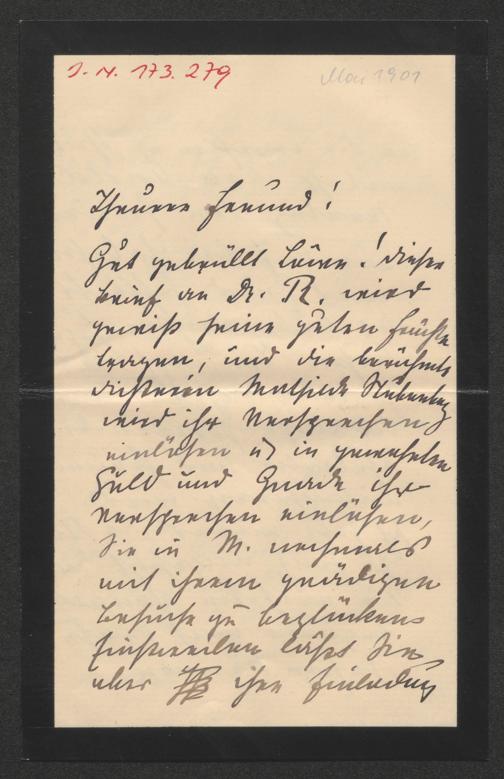 J. N. 173.279
Mai 1901
Theurer Freund!
Gut gebrüllt Löwe! dieser
Brief an Dr. R. wird
gewiß seine guten Früchte
tragen, und die berühmte
Dichterin Mathilde
wird ihr Versprechen
einlösen u in
Huld und Gnade ihr
Versprechen einlösen,
Sie in M. nochmals
mit ihrem gnädigen
Besuche zu beglücken
Einstweilen läßt Sie
aber ihre Einladung